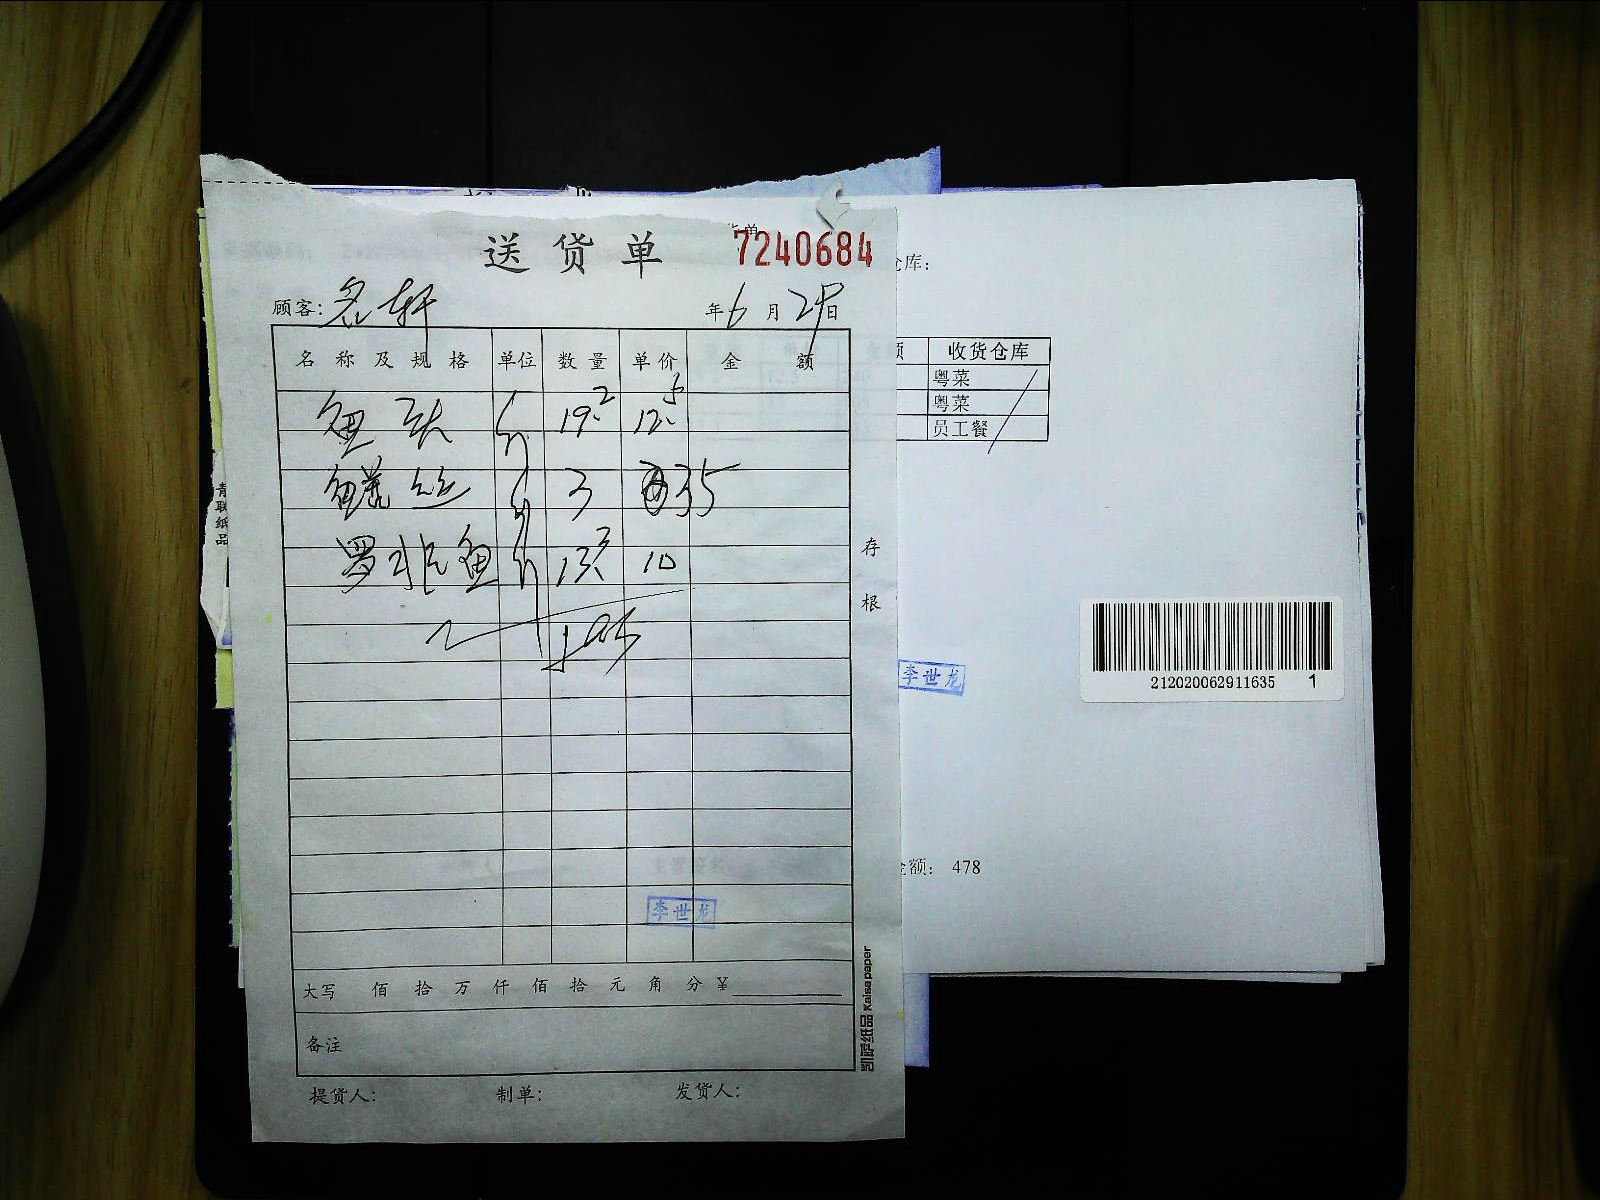 送货单 7240684
顾客: 名轩 年6月29日
名称及规格 单位 数量 单价 金额
鱼头 斤 19.2 12.5
鳝丝 斤 3 35
罗非鱼 斤 13.3 10
存根
李世龙
大写 佰 拾 万 仟 佰 拾 元 角 分 ¥
备注
提货人: 制单: 发货人:
凯萨纸品 Kaisa paper
青联纸品
货单
仓库:
额 收货仓库
粤菜
粤菜
员工餐
李世龙
212020062911635 1
金额: 478